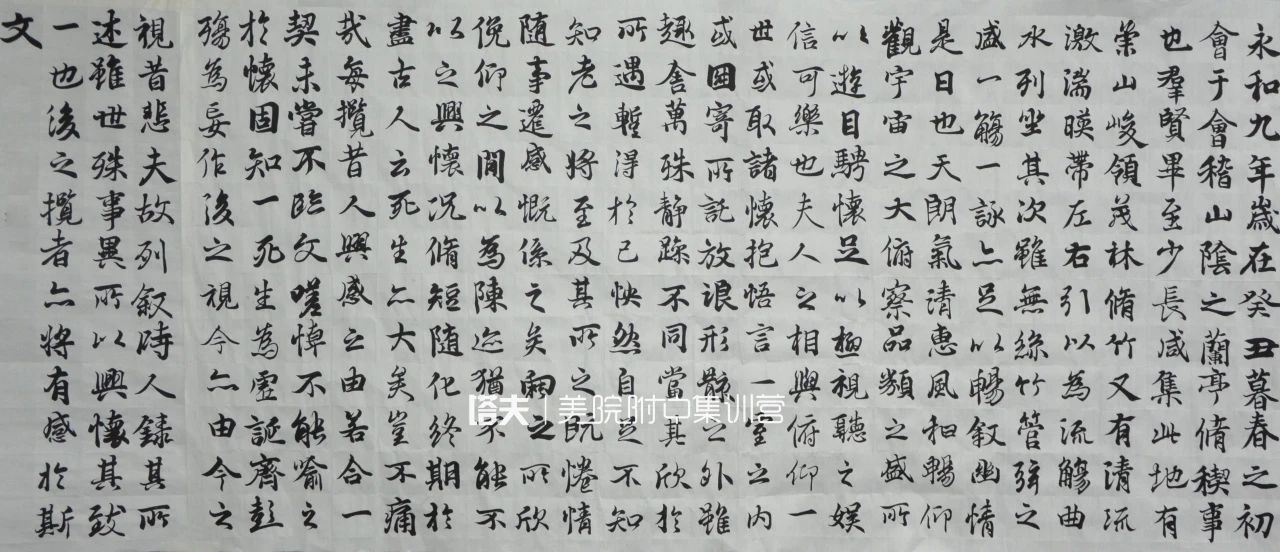 永和九年歳在癸丑暮春之初
會于會稽山陰之蘭亭脩稧事
也羣賢畢至少長咸集此地有
崇山峻領茂林脩竹又有清流
激湍暎帶左右引以為流觴曲
水列坐其次雖無絲竹管弦之
盛一觴一詠亦足以暢叙幽情
是日也天朗氣清惠風和暢仰
觀宇宙之大俯察品類之盛所
以遊目騁懷足以極視聽之娱
信可樂也夫人之相與俯仰一
世或取諸懷抱悟言一室之内
或因寄所託放浪形骸之外雖
趣舍萬殊静躁不同當其欣於
所遇蹔得於己怏然自足不知
知老之将至及其所之既惓情
随事遷感慨係之矣向之所欣
俛仰之閒以為陳迹猶不能不
以之興懷况脩短随化終期於
盡古人云死生亦大矣豈不痛
哉每攬昔人興感之由若合一
契未嘗不臨文嗟悼不能喻之
於懷固知一死生為虚誕齊彭
殤為妄作後之視今亦由今之
視昔悲夫故列叙時人録其所
述雖世殊事異所以興懷其致
一也後之攬者亦将有感於斯
文
塔夫 美院附中集训营